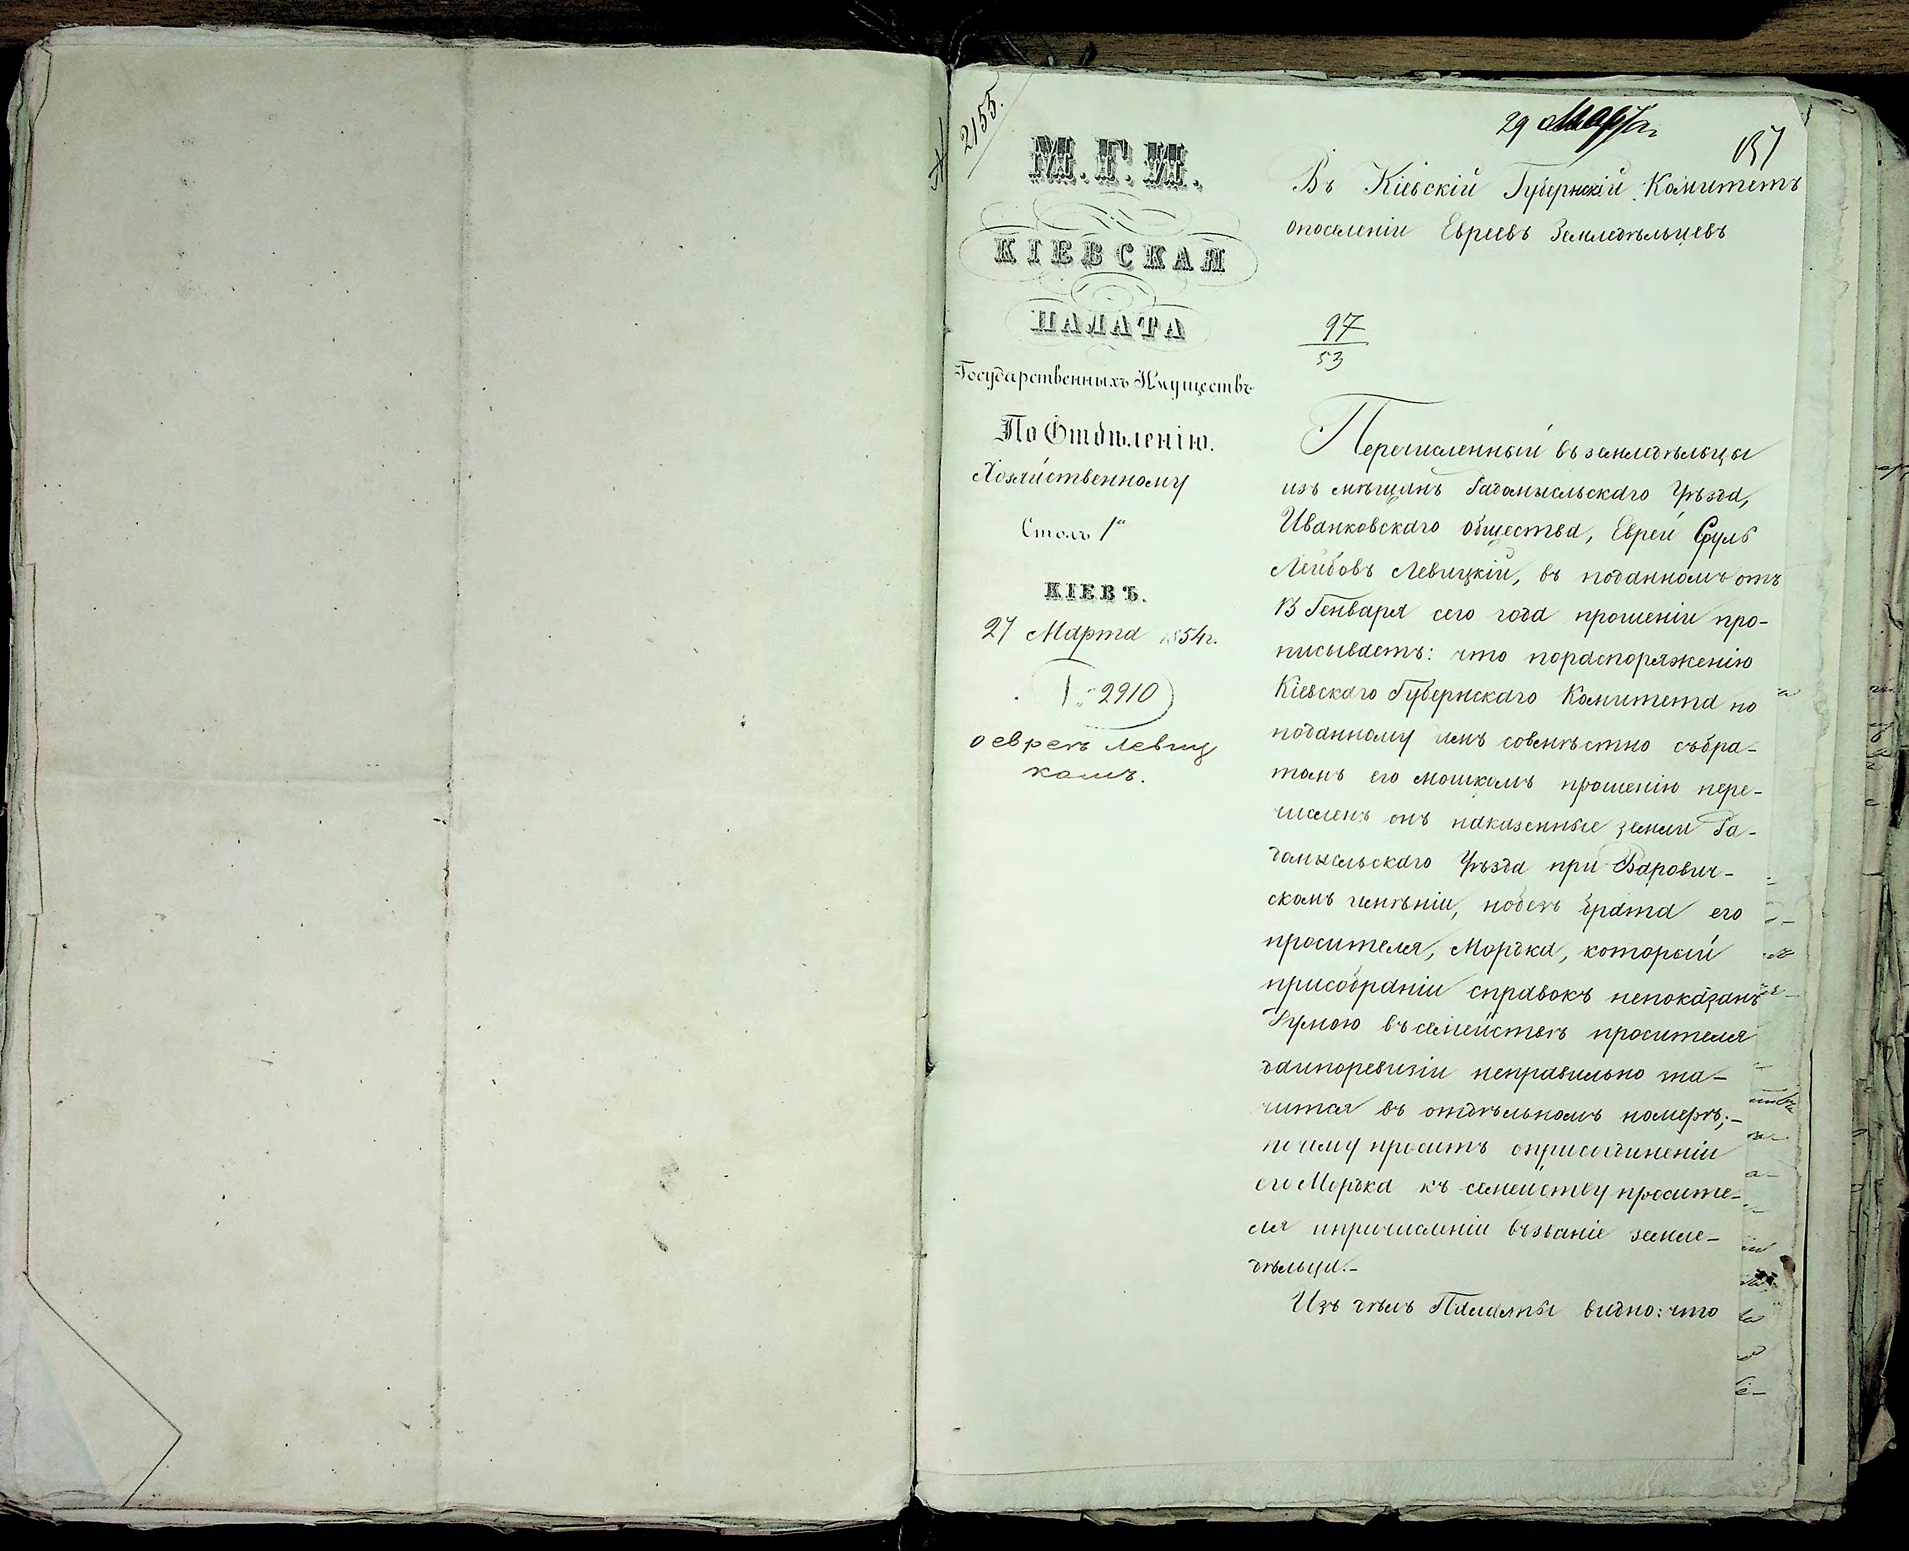 2155.
29 Марта
М.Г.И.
КІЕВСКАЯ
ПАЛАТА
Государственныхъ Имуществъ
По Отдѣленію.
Хозяйственному
Столъ 1й
КІЕВЪ.
27 Марта 1854г.
2910
о евреѣ Левиц
комъ.
Въ Кіевскій Губернскій Комитетъ
опоселеніи Евреевъ Земледѣльцевъ
97
53
Перечисленный въ земледѣльцы
изъ мѣщанъ Радомысльскаго Уѣзда,
Иванковскаго общества, Еврей Сруль
Лейбовъ Левицкій, въ поданномъ отъ
13 Генваря сего года прошеніи про-
писываетъ: что пораспоряженію
Кіевскаго Губернскаго Комитета по
поданному имъ совмѣстно събра-
томъ его Мошкомъ прошенію пере-
численъ онъ наказенные земли Ра-
домысльскаго Уѣзда при Варович-
скомъ имѣніи, нобезъ брата его
просителя, Морѣка, который
присобраніи справокъ непоказанъ
Думою въсемействѣ просителя
даипоревизіи неправильно зна-
чится въ отдѣльномъ номерѣ;-
почему проситъ оприсоединеніи
его Морѣка къ семейству просите-
ля ипричисленіи възваніе земле-
дѣльца.-
Изъ дѣлъ Палаты видно: что